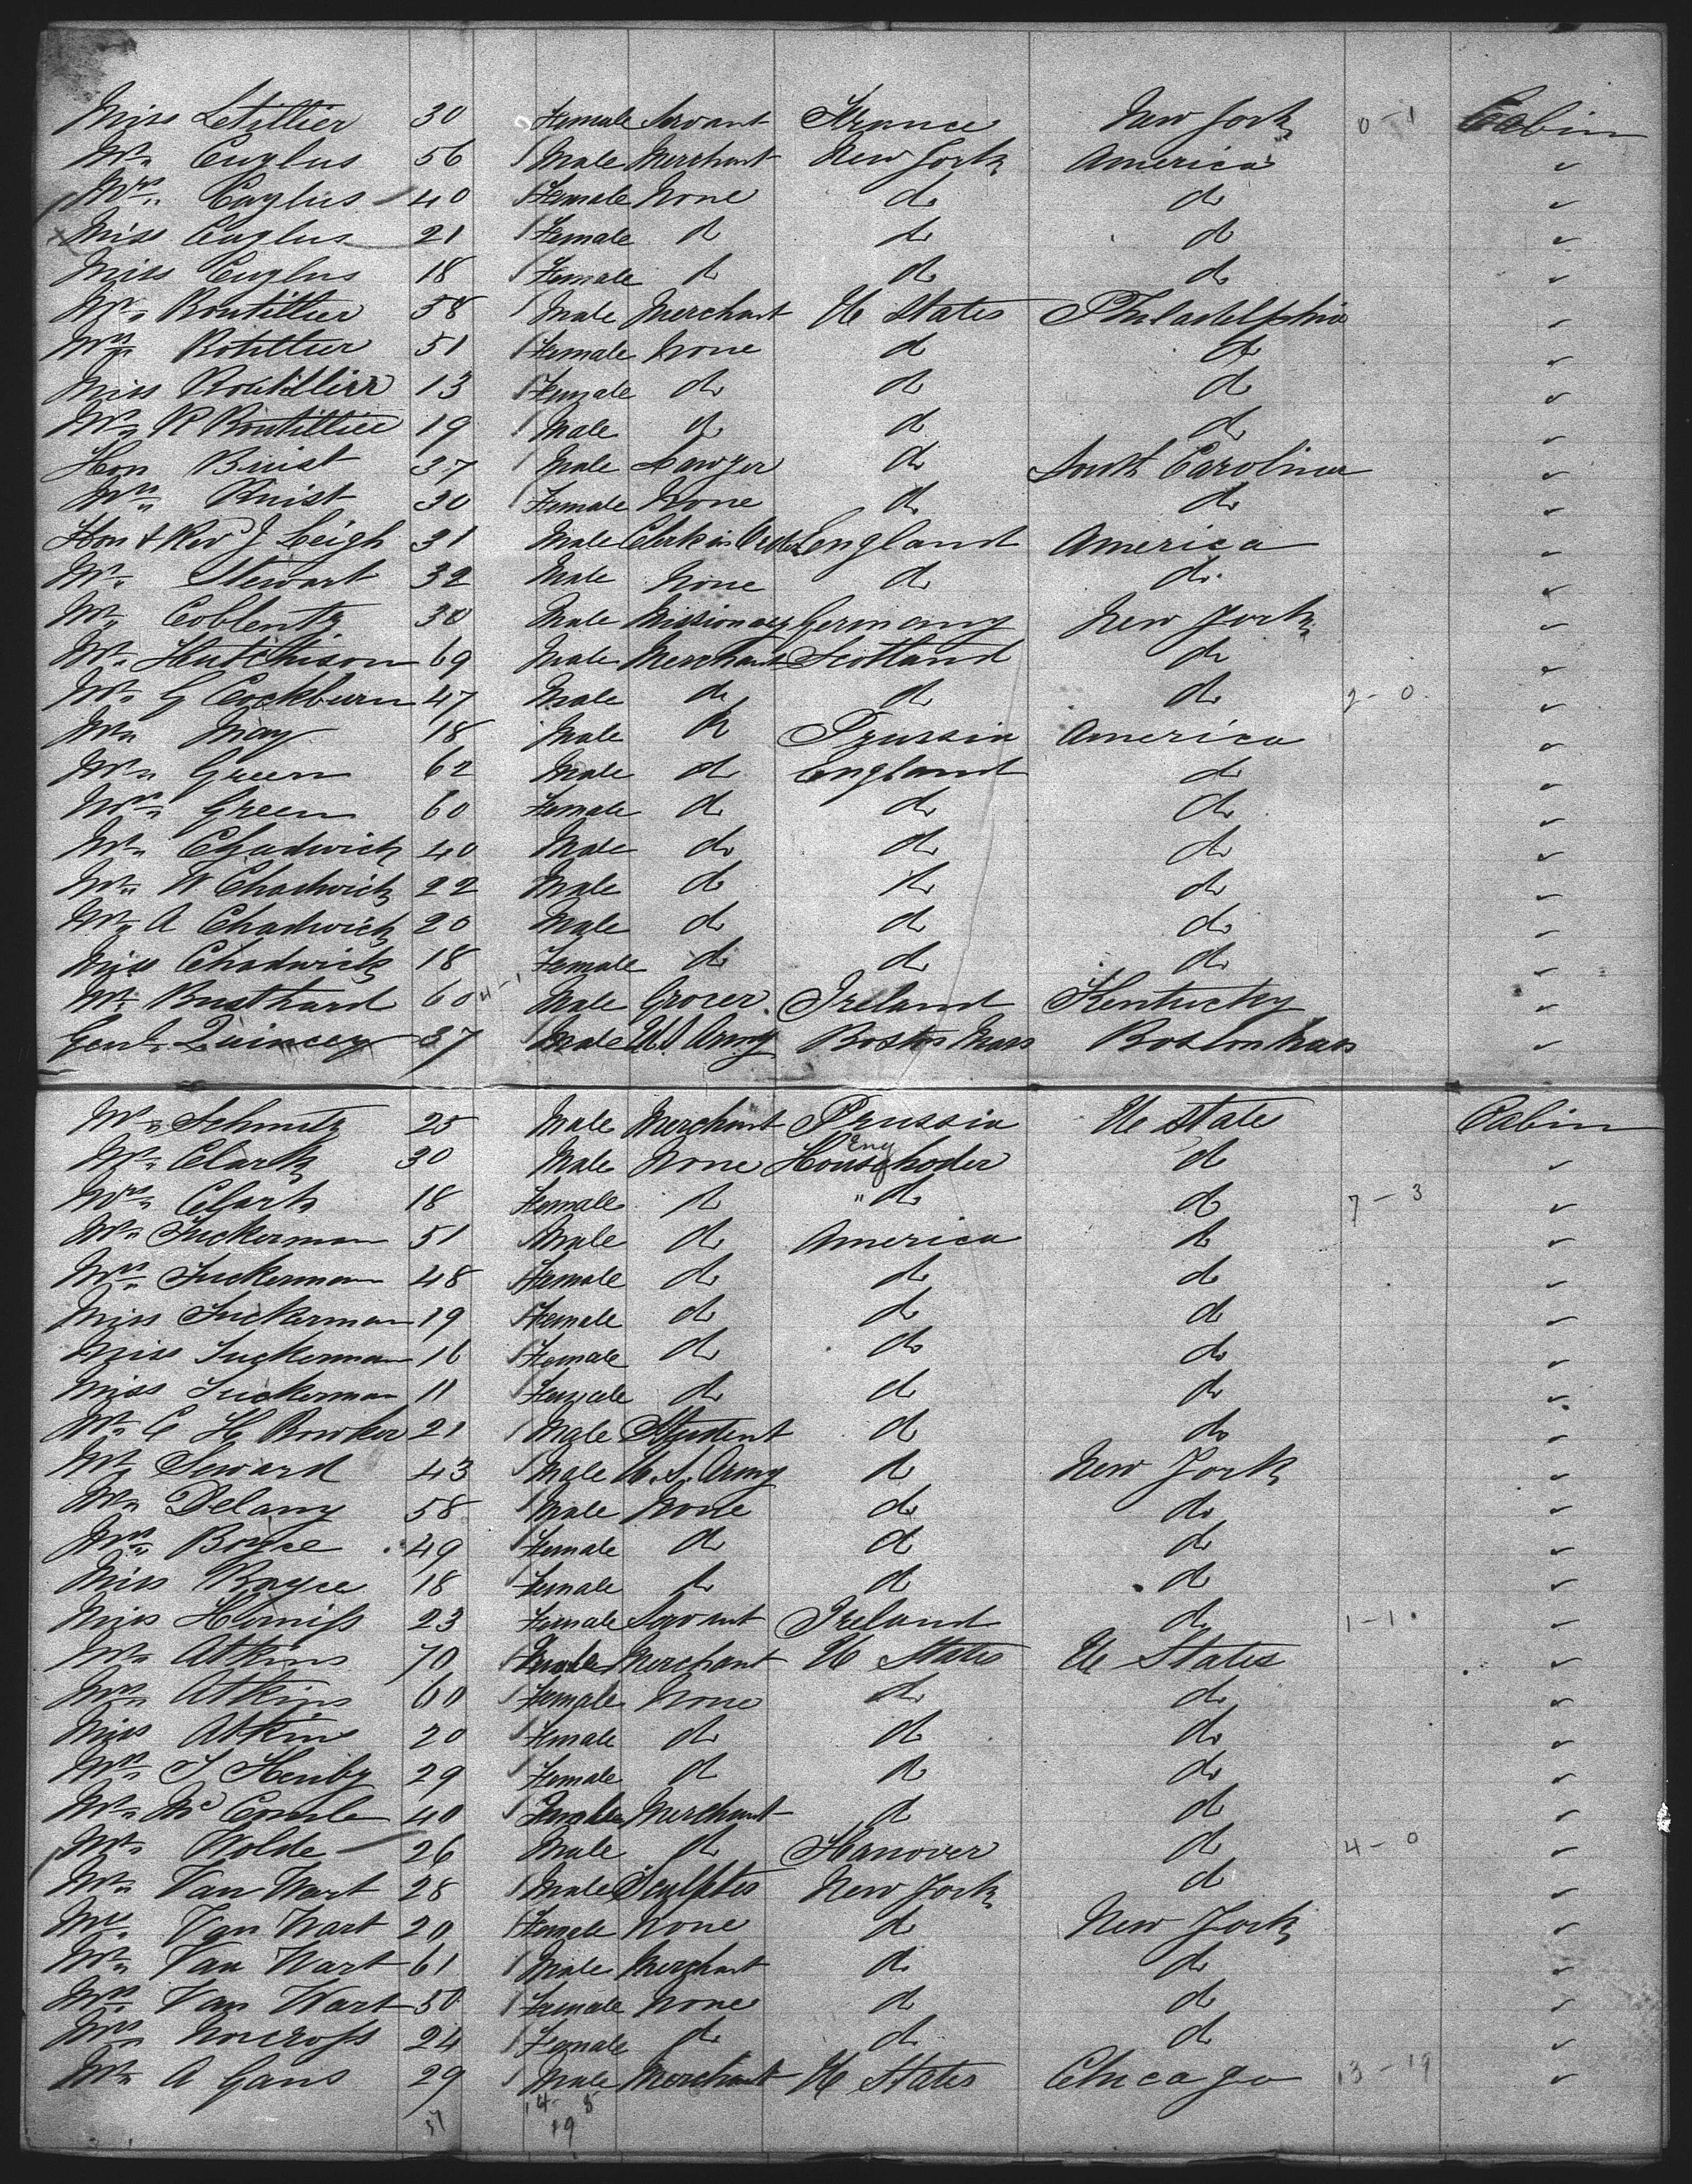 Miss Letillier 30 Female Servant France New York 0-1 Cabin
Mr. Cuylus 56 / Male Merchant New York America ✓
Mrs. Cuylus 40 / Female None do do ✓
x Miss Cuylus 21 / Female do do do ✓
Miss Cuylus 18 / Female do do do ✓
Mr. Boutillier 58 / Male Merchant U States Philadelphia ✓
Mrs. Botillier 51 / Female None do do ✓
Miss Boutillier 13 / Female do do do ✓
Mr. R Boutillier 19 / Male do do do ✓
Hon Buist 37 / Male Lawyer do South Carolina ✓
Mrs. Buist 30 / Female None do do ✓
Hon & Rev J Leigh 31 Male Clerk in Orders England America ✓
Mr. Stewart 32 Male None do do ✓
Mr. Coblentz 30 Male Missionary Germany New York ✓
Mr. Hutchison 69 Male Merchant Scotland do ✓
Mr. G Cockburn 47 Male do do do 2-0 ✓
Mr. May 18 Male do Prussia America ✓
Mr. Green 62 Male do England do ✓
Mrs. Green 60 Female do do do ✓
Mr. Chadwick 40 Male do do do ✓
Mr. W Chadwick 22 Male do do do ✓
Mr. A Chadwick 20 Male do do do ✓
Miss Chadwick 18 Female do do do ✓
Mr. Busthard 60 4-1 Male Grocer Ireland Kentucky ✓
Genl. Quincey 37 / Male U.S Army Boston Mass Boston Mass ✓
Mr. Schmitz 25 Male Merchant Prussia U State Cabin
Mr. Clark 30 Male None Eng Househoder do ✓
Mrs. Clark 18 Female do " do do 7-3 ✓
Mr. Tuckerman 51 / Male do America do ✓
Mrs. Tuckerman 48 / Female do do do ✓
Miss Tuckerman 19 / Female do do do ✓
Miss Tuckerman 16 / Female do do do ✓
Miss Tuckerman 11 / Female do do do ✓
Mr. C H Bowker 21 / Male Student do do ✓
Mr. Seward 43 / Male U.S. Army do New York ✓
Mr. Delany 58 / Male None do do ✓
Mrs. Boyce 49 / Female do do do ✓
Miss Boyce 18 / Female do do do ✓
Miss 23 Female Servant Ireland do 1-1 ✓
Mr. Atkins 70 / Male Merchant U States U States ✓
Mrs. Atkins 60 / Female None do do ✓
Miss Atkins 20 / Female do do do ✓
Mrs. J Henby 29 / Female do do do ✓
Mr. McComb 40 / Merchant do do ✓
Mr. Wolde 26 Male do Hanover do 4-0 ✓
Mr. Van Wart 28 / Male Sculptor New York do ✓
Mrs. Van Wart 20 / Female None do New York ✓
Mr. Van Wart 61 / Male Merchant do do ✓
Mrs. Van Wart 50 / Female None do do ✓
Mrs. Norcross 24 / Female do do do ✓
Mr. A Gans 29 / Male Merchant U States Chicago 13-19 ✓
51 14 5
19